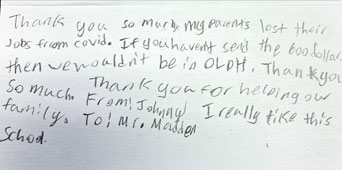 Thank you so much, my parents lost their
Jobs from covid. If you havent send the 600 dollars
then we wouldn't be in OLPH. Thank you
So much. Thank you for helping our
family. From: Johnny I really like this
School. To: Mr. Madden